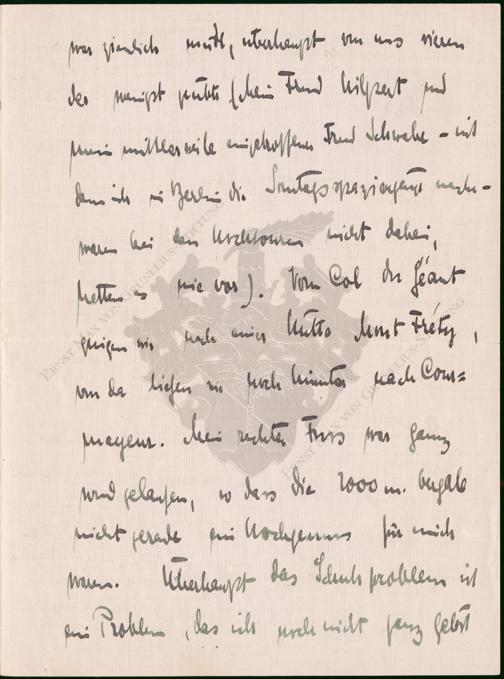 war ziemlich müde, überhaupt von uns vieren
der wenigst geübte (mein Freund Hilpert und
mein mittlerweile eingetroffener Freund Schwabe – mit
dem ich in Berlin die Sonntagsspaziergänge mach-
waren bei den Hochtouren nicht dabei,
hatten es nie vor). Vom Col du Géant
gingen wir nach einer Hütte Mont Fréty,
von da liefen wir noch hinunter nach Cour=
mayeur. Mein rechter Fuss war ganz
wund gelaufen, so dass die 2000 m. bergab
nicht gerade ein Hochgenuss für mich
waren. Überhaupt das Schuhproblem ist
ein Problem, das ich noch nicht ganz gelöst
ERNST MAX VON GRUNELIUS-STIFTUNG
ERNST MAX VON GRUNELIUS-STIFTUNG